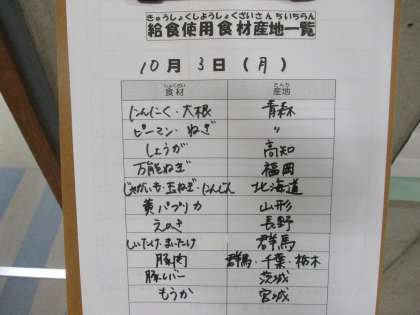 きゅうしょくしようしょくざいさんちいちらん
給食使用食材産地一覧
10月3日(月)
しょくざい さんち
食材 産地
にんにく・大根 青森
ピーマン・ねぎ 〃
しょうが 高知
万能ねぎ 福岡
じゃがいも・玉ねぎ・にんじん 北海道
黄パプリカ 山形
えのき 長野
しいたけ・まいたけ 群馬
豚肉 群馬・千葉・栃木
豚レバー 茨城
もうか 宮城